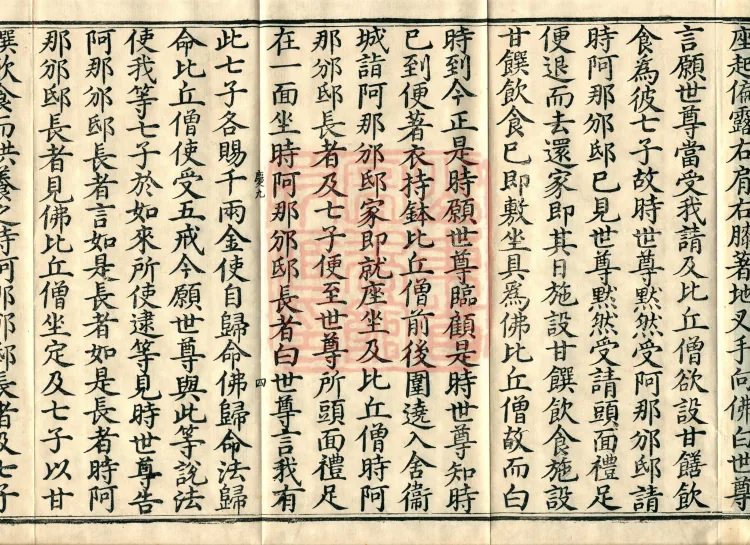 座起偏露右肩右膝著地叉手向佛白世尊
言願世尊當受我請及比丘僧欲設甘饍飲
食為彼七子故時世尊默然受阿那邠邸請
時阿那邠邸已見世尊默然受請頭面禮足
便退而去還家即其日施設甘饌飲食施設
甘饌飲食已即敷坐具為佛比丘僧故而白
時到今正是時願世尊臨顧是時世尊知時
已到便著衣持鉢比丘僧前後圍遶入舍衞
城詣阿那邠邸家即就座坐及比丘僧時阿
那邠邸長者及七子便至世尊所頭面禮足
在一面坐時阿那邠邸長者白世尊言我有
慶九 四
此七子各賜千兩金使自歸命佛歸命法歸
命比丘僧使受五戒今願世尊與此等說法
使我等七子於如來所使逮等見時世尊告
阿那邠邸長者言如是長者如是長者時阿
那邠邸長者見佛比丘僧坐定及七子以甘
饌飲食而供養之時阿那邠邸長者及七子